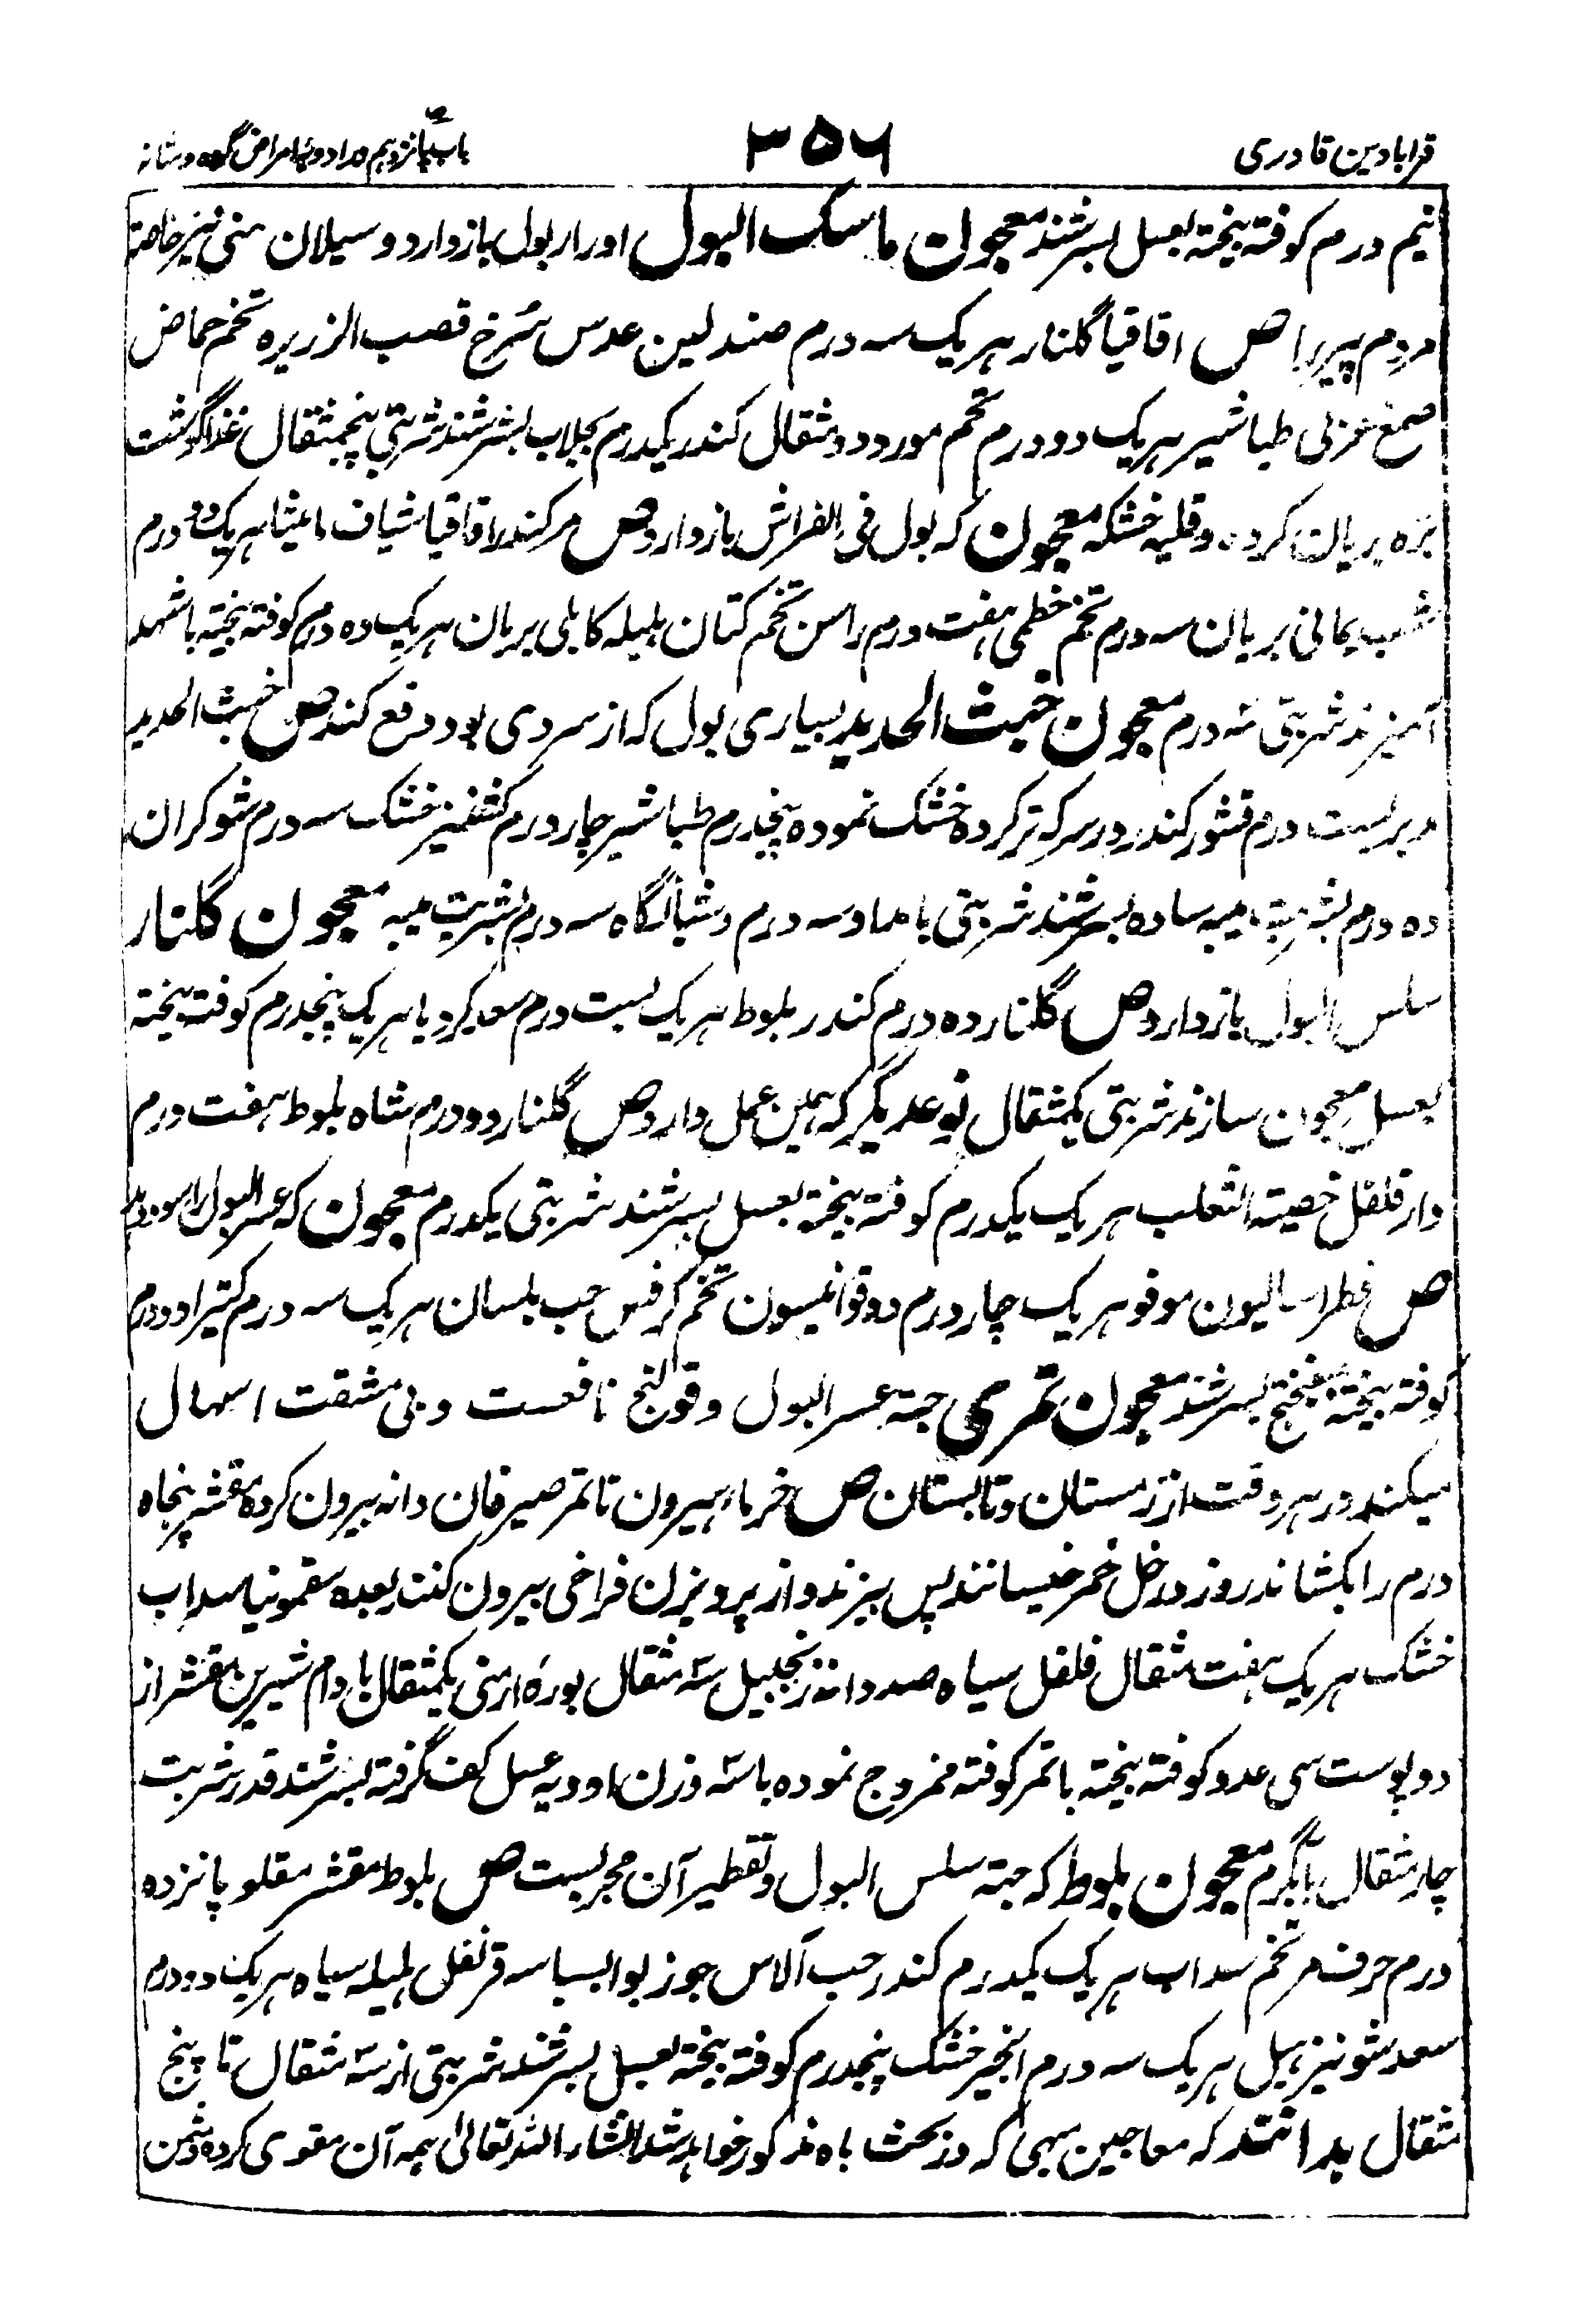 قرابادین قادری
۳۵۶
باب پانزدهم در ادویه امراض گرده و مثانه
نیم درم کوفته بیخته بعسل بسرشند معجون ماسک البول ادرار بول بازدارد و سیلان منی نیز خاصة
مردم پیر را ص اقاقیا گلنار هر یک سه درم صندلین عدس سُرخ قصب الزریره تخم حماض
صمغ عربی طباشیر هر یک دو درم تخم مورد دو مثقال کندر یکدرم بجلاب بسرشند شربتی پنجمثقال غذا گوشت
بَرّه بریان کرده و قلیه خشکه معجون که بول فی الفراش بازدارد ص مر کندر اقاقیا شیاف مامیثا هر یک دو درم
شب یمانی بریان سه درم تخم خطمی هفت درم راسن تخم کتان هلیله کابلی بریان هر یک ده درم کوفته بیخته با شهد
آمیزند شربتی سه درم معجون خبث الحدید بسیاری بول که از سردی بود دفع کند ص خبث الحدید
مدبر بست درم قشور کندر در سرکه تر کرده خشک نموده پنجدرم طباشیر چار درم کشنیز خشک سه درم شوکران
ده درم بشربت میبه ساده بسرشند شربتی بامداد سه درم و شبانگاه سه درم بشربت میبه معجون گلنار
سلس البول بازدارد ص گلنار ده درم کندر بلوط هر یک بست درم سعد کرویا هر یک پنجدرم کوفته بیخته
بعسل معجون سازند شربتی یکمثقال نوعدیگر که همین عمل دارد ص گلنار دو درم شاه بلوط هفت درم
دارفلفل خصیة الثعلب هر یک یکدرم کوفته بیخته بعسل بسرشند شربتی یکدرم معجون که عسر البول را سود دهد
ص فطراسالیون مو فو هر یک چار درم دوقو انیسون تخم کرفس حب بلسان هر یک سه درم کتیرا دو درم
کوفته بیخته بمیفختج بسرشند معجون تمری جهة عسر البول و قولنج نافعست و بی مشقت اسهال
میکند در هر وقت از زمستان و تابستان ص خرماء هیرون تا تمر صیرفان دانه بیرون کرده مقشر پنجاه
درم را یکشبانه روز در خل خمر خیسانند پس بپزند و از پرویزن فراخی بیرون کنند بعده سقمونیا سداب
خشک هر یک هفت مثقال فلفل سیاه صد دانه زنجبیل سه مثقال بورهٔ ارمنی یکمثقال بادام شیرین مقشر از
دو پوست سی عدد کوفته بیخته با تمر کوفته ممزوج نموده با سه وزن ادویه عسل کف گرفته بسرشند قدر شربت
چار مثقال بآبگرم معجون بلوط که جهة سلس البول و تقطیر آن مجربست ص بلوط مقشر مقلو پانزده
درم حرف مر تخم سداب هر یک یکدرم کندر حب آلاس جوز بوا بسباسه قرنفل هلیله سیاه هر یک دو درم
سعد شونیز هیل هر یک سه درم انجیر خشک پنجدرم کوفته بیخته بعسل بسرشند شربتی از سه مثقال تا پنج
مثقال بدانند که معاجین بهی که در بحث باه مذکور خواهد شد انشاء الله تعالیٰ همه آن مقوی گرده و مسخن